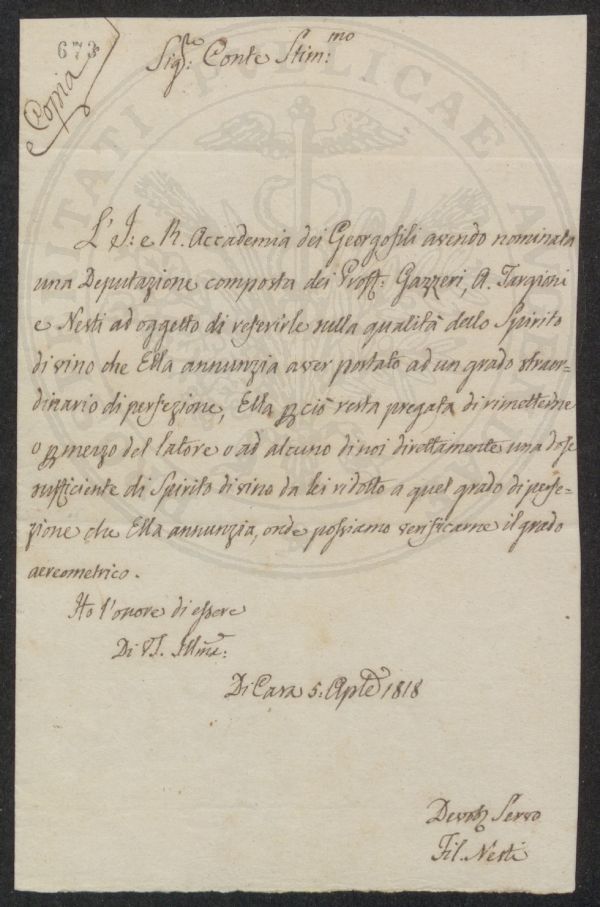 673
Copia
Sig:re Conte Stim:mo
L'I: e R. Accademia dei Georgofili avendo nominata
una Deputazione composta dei Proff:i Gazzeri, A. Targioni
e Nesti ad oggetto di referirle sulla qualità dello Spirito
di vino che Ella annunzia aver portato ad un grado straor-
dinario di perfezione, Ella p ciò resta pregata di rimetterne
o p mezzo del latore o ad alcuno di noi direttamente una dose
sufficiente di Spirito di vino da lei ridotto a quel grado di perfe-
zione che Ella annunzia, onde possiamo verificarne il grado
aereometrico.
Ho l'onore di essere
Di VS. Illma:
Di Casa 5. Aple 1818
Devot Servo
Fil. Nesti